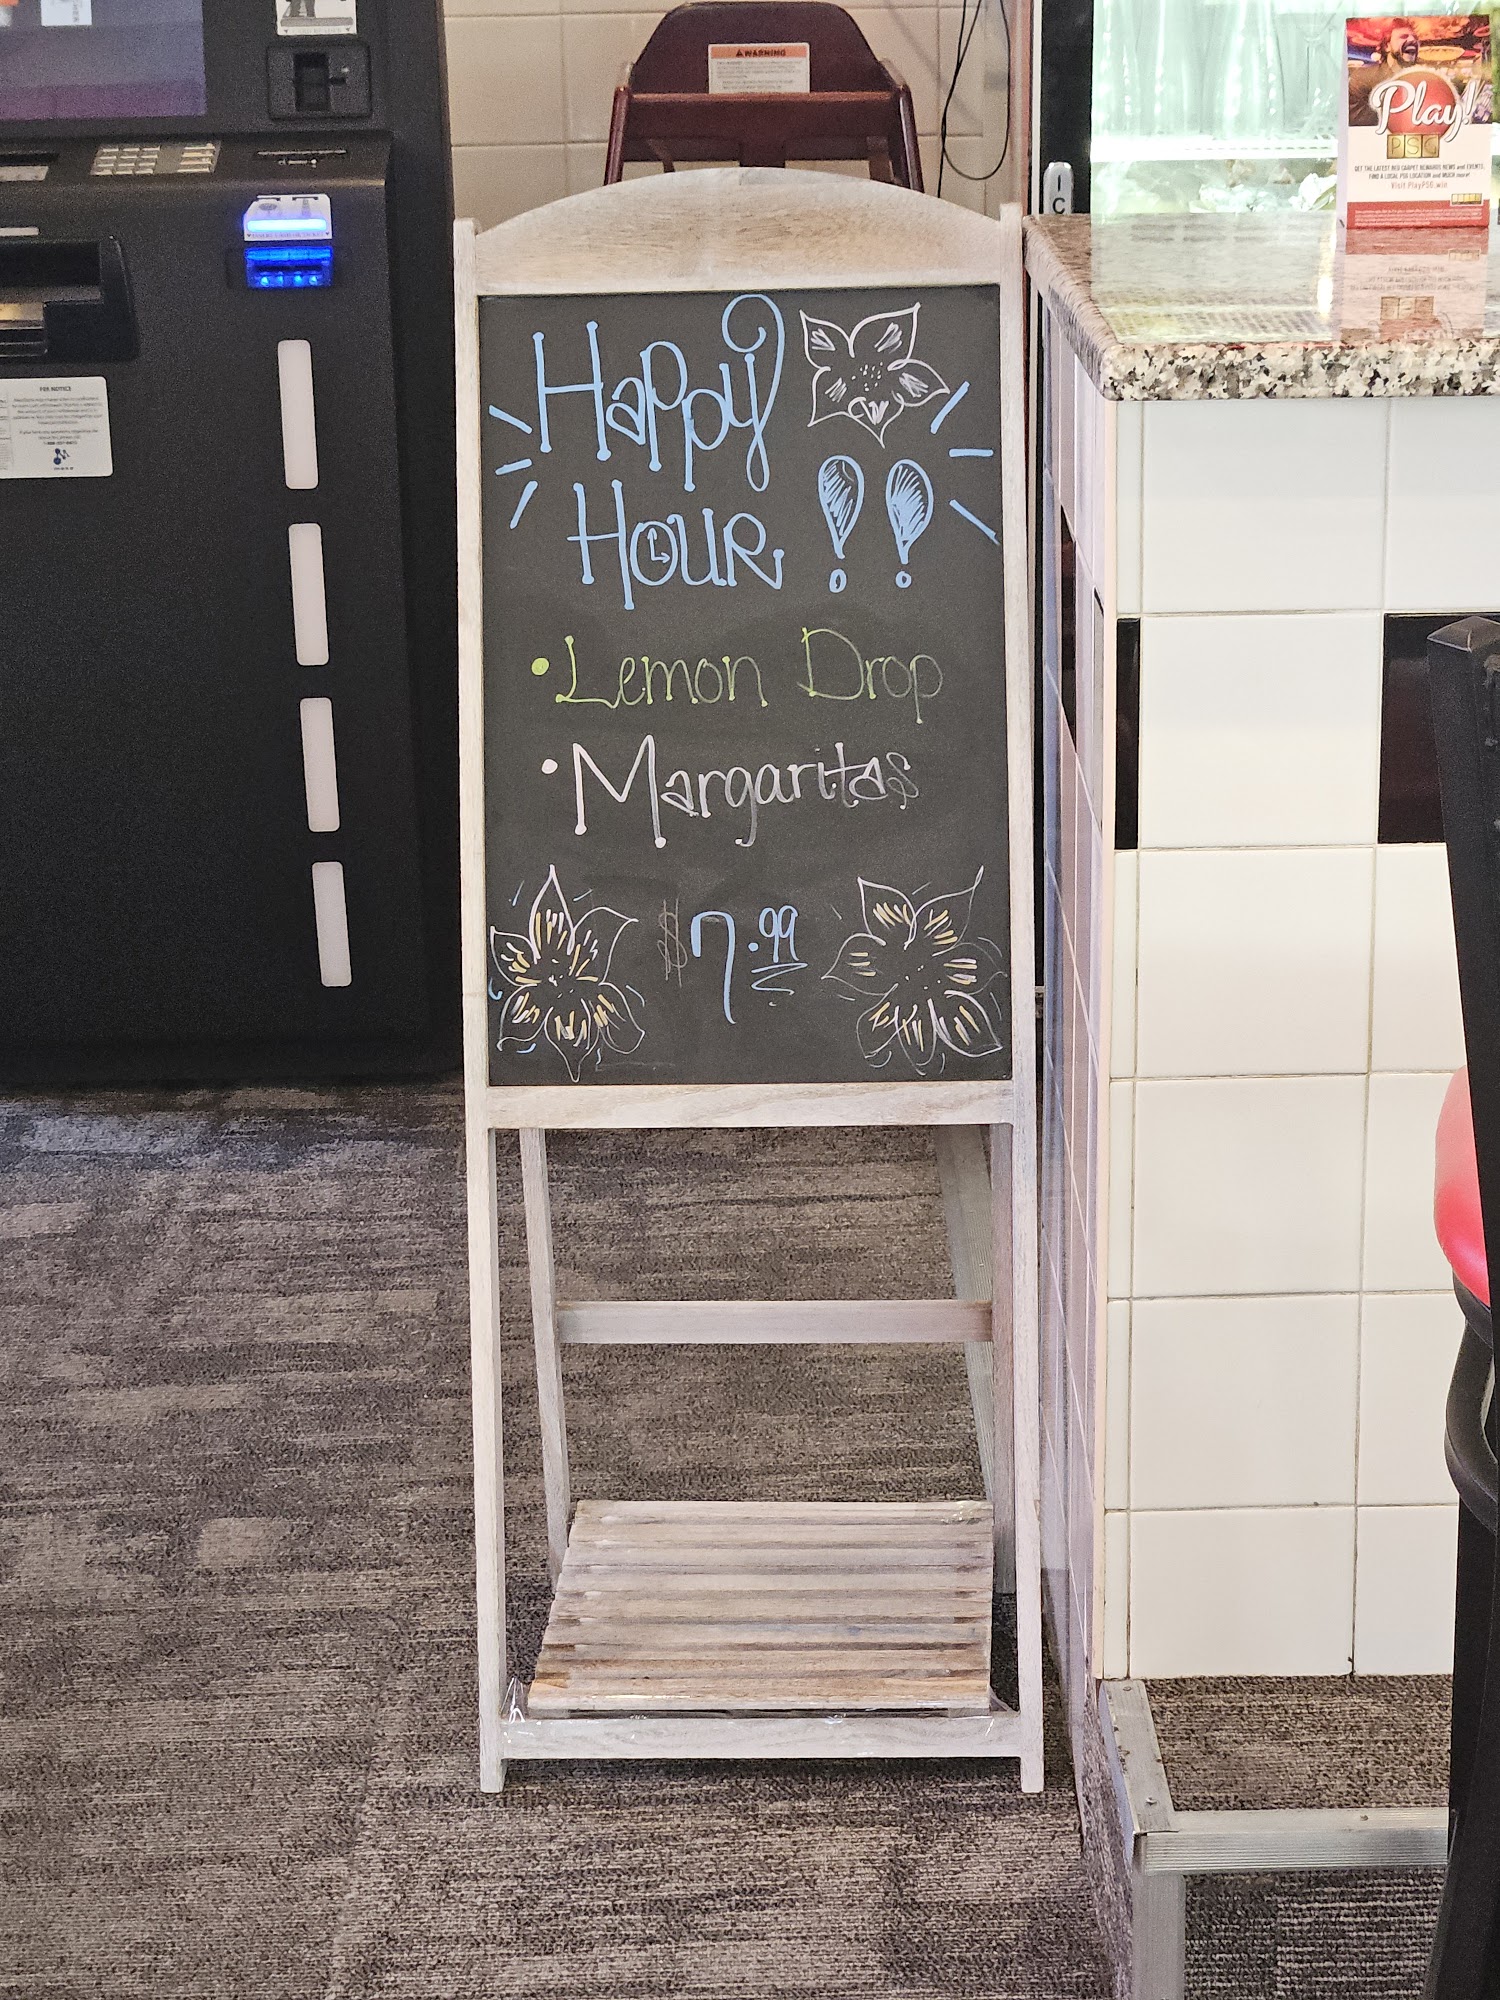 Happy
Hour!!
• Lemon Drop
• Margaritas
$7.99
WARNING
Play!
PSG
GET THE LATEST RED CARPET REWARDS NEWS and EVENTS,
FIND A LOCAL PSG LOCATION and MUCH more!
Visit PlayPSG.win
IC
FOR NOTICE